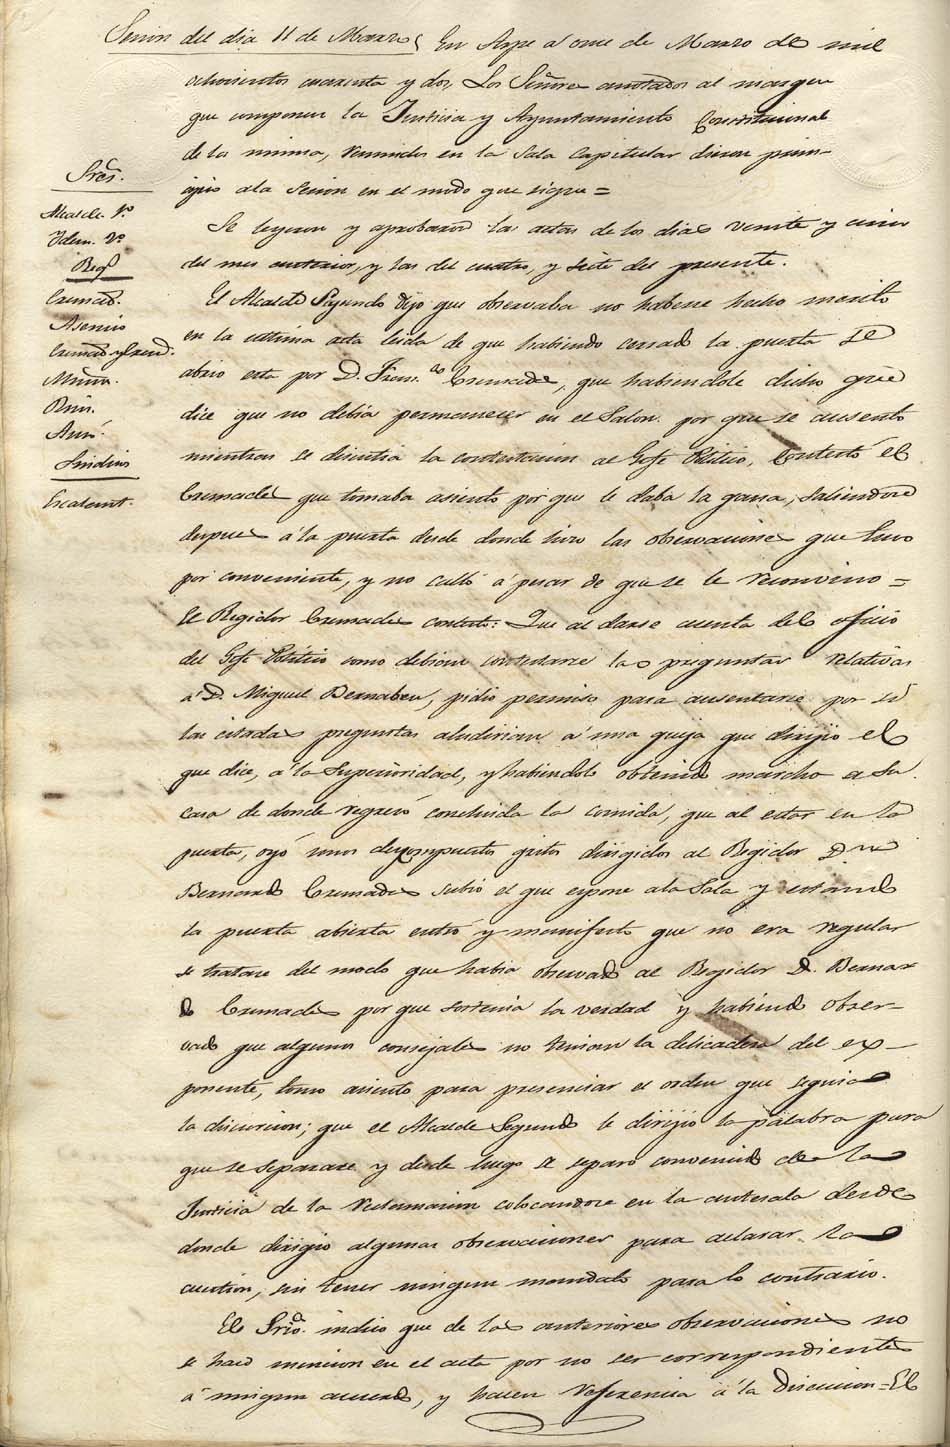 Sesion del dia 11 de Marzo. En Aspe al once de Marzo de mil
ochocientos cuarenta y dos, Los Señores anotados al margen
que componen la Justicia y Ayuntamiento Constitucional
de la misma, reunidos en la Sala Capitular dieron prin-
cipio a la Sesion en el modo que sigue =
Sres.
Alcalde 1º
Idem. 2º
Regs
Cremads.
Asencio
Cremads y
Almn.
Bañ.
Sindico
Escalant.
Se leyeron y aprobaron las actas de los dias veinte y cinco
del mes anterior, y las del cuatro, y siete del presente.
El Alcalde Segundo dijo que observaba no haberse hecho merito
en la ultima acta leida de que habiendo cerrado la puerta se
abrio esta por D. Franco Cremades, que habiendole dicho que
dice que no debia permanecer en el Salon por que se ausento
mientras se discutia la contestacion al Gefe Politico, Contestó el
Cremades que tomaba asiento por que le daba la gana, saliendose
despues á la puerta desde donde hizo las observaciones que tuvo
por conveniente, y no calló á pesar de que se le reconvino =
El Regidor Cremades contestó: Que al darse cuenta del oficio
del Gefe Politico como debian contestarse las preguntas relativas
a D Miguel Bernabeu, pidio permiso para ausentarse por si
las citadas preguntas aludirian á una queja que dirijio el
que dice, á la Superioridad, y habiendolo obtenido marcho a su
casa de donde regresó concluida la comida, que al estar en la
puerta, oyó unos descompuestos gritos dirigidos al Regidor Dn
Bernardo Cremades subio el que espone a la Sala y estando
la puerta abierta entró y manifesto que no era regular
se tratase del modo que habia observado al Regidor D. Bernar
do Cremades por que sostenia la verdad y habiendo obser-
vado que algunos consejales no tenian la delicadesa del ex-
ponente, tomo asiento para presenciar el orden que seguia
la discusion; que el Alcalde Segundo le dirijio la palabra para
que se separase y desde luego se separó convencido de la
Justicia de la reclamacion colocandose en la antesala desde
donde dirigio algunas observaciones para aclarar la
cuestion, sin tener ningun mandato para lo contrario.
El Srio. indico que de las anteriores observaciones no
se hace mencion en el acta por no ser correspondientes
á ningun acuerdo, y hacen referencia á la discusion = El